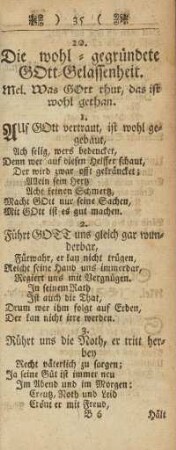 ) 35 (
20.
Die wohl-gegründete
GOtt-Gelassenheit.
Mel. Was GOtt thut, das ist
wohl gethan.
1.
Auf GOtt vertraut, ist wohl ge-
bauet,
Ach selig, wers bedencket,
Denn wer auf diesen Helffer schaut,
Der wird zwar offt gekräncket;
Allein sein Hertz
Acht keinen Schmertz,
Macht GOtt nur seine Sachen,
Mit GOtt ist es gut machen.
2.
Führt GOTT uns gleich gar wun-
derbar,
Fürwahr, er kan nicht trügen,
Reicht seine Hand uns immerdar,
Regiert uns mit Vergnügen.
In seinem Rath
Ist auch die That,
Drum wer ihm folgt auf Erden,
Der kan nicht irre werden.
3.
Rührt uns die Noth, er tritt her-
bey
Recht väterlich zu sorgen;
Ja seine Güt ist immer neu
Im Abend und im Morgen:
Creutz, Noth und Leid
Crönt er mit Freud,
B 6 Hält